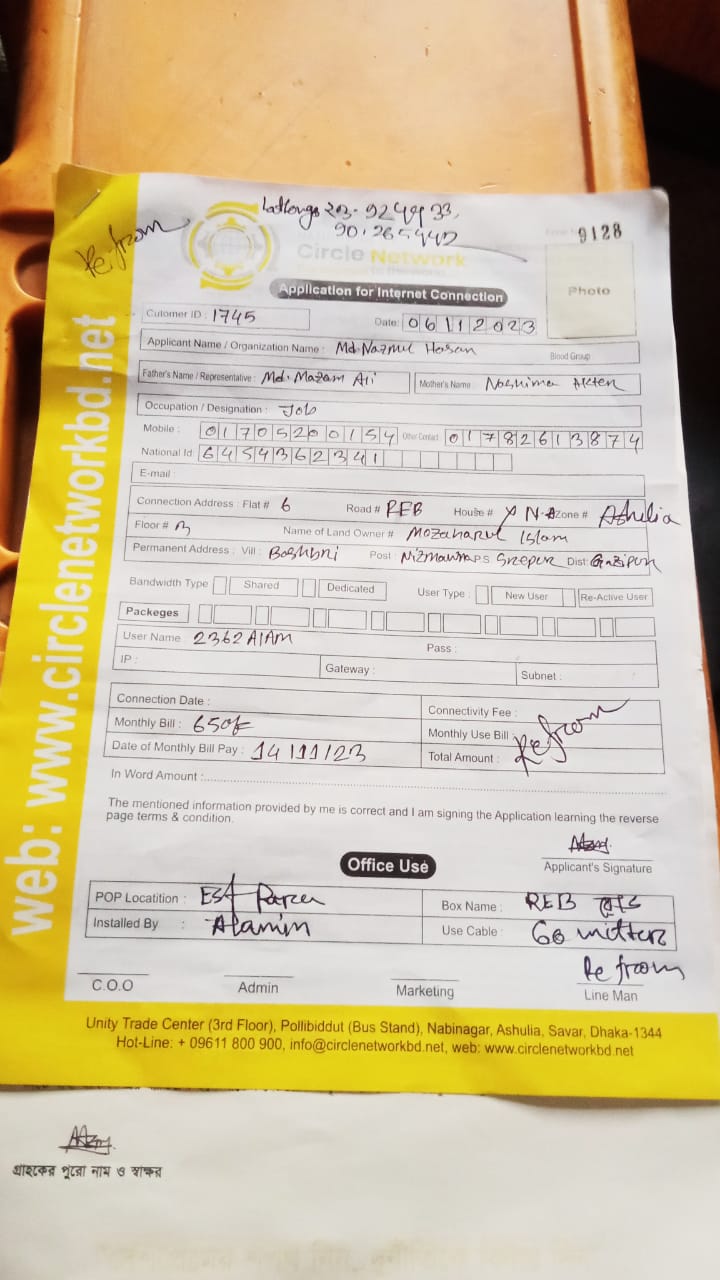 Re from
9244933,
90.265442
9128
Circle Network
Photo
Application for Internet Connection
Cutomer ID : 1745
Date: 06112023
Applicant Name / Organization Name : Md. Nazmul Hasan
Blood Group
Father's Name / Representative : Md. Mazam Ali
Mother's Name : Noshima Akter
Occupation / Designation : Job
Mobile : 01705200154 Other Contact 01782613874
National Id: 6454362341
E-mail :
Connection Address : Flat # 6 Road # REB House # N-A Zone # Ashulia
Floor # Name of Land Owner # Mozaharul Islam
Permanent Address : Vill : Post : P.S Sreepur Dist: Gazipur
Bandwidth Type Shared Dedicated User Type : New User Re-Active User
Packeges
User Name : 2362AlAM Pass :
IP : Gateway : Subnet :
Connection Date : Connectivity Fee :
Monthly Bill : 650/- Monthly Use Bill :
Date of Monthly Bill Pay : 14/11/23 Total Amount : Re from
In Word Amount :
The mentioned information provided by me is correct and I am signing the Application learning the reverse
page terms & condition.
Applicant's Signature
Office Use
POP Locatition : Box Name : REB
Installed By : Alamin Use Cable : 60 mitter
Re from
C.O.O Admin Marketing Line Man
Unity Trade Center (3rd Floor), Pollibiddut (Bus Stand), Nabinagar, Ashulia, Savar, Dhaka-1344
Hot-Line: + 09611 800 900, info@circlenetworkbd.net, web: www.circlenetworkbd.net
web: www.circlenetworkbd.net
গ্রাহকের পুরো নাম ও স্বাক্ষর